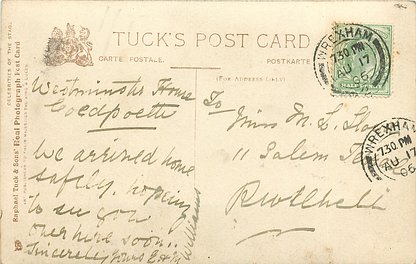 TUCK'S POST CARD
CARTE POSTALE.
POSTKARTE
(FOR ADDRESS ONLY)
CELEBRITIES OF THE STAGE
Raphael Tuck & Sons' Real Photograph Post Card
WREXHAM
7.30 PM
AU 17
HALF
WREXHAM
7.30 PM
AU 17
Westminster House
Coedpoeth
We arrived home
safely. hoping
to see you
over here soon..
Sincerely yours
Williams
To Miss M. L.
11 Salem
Pwllheli